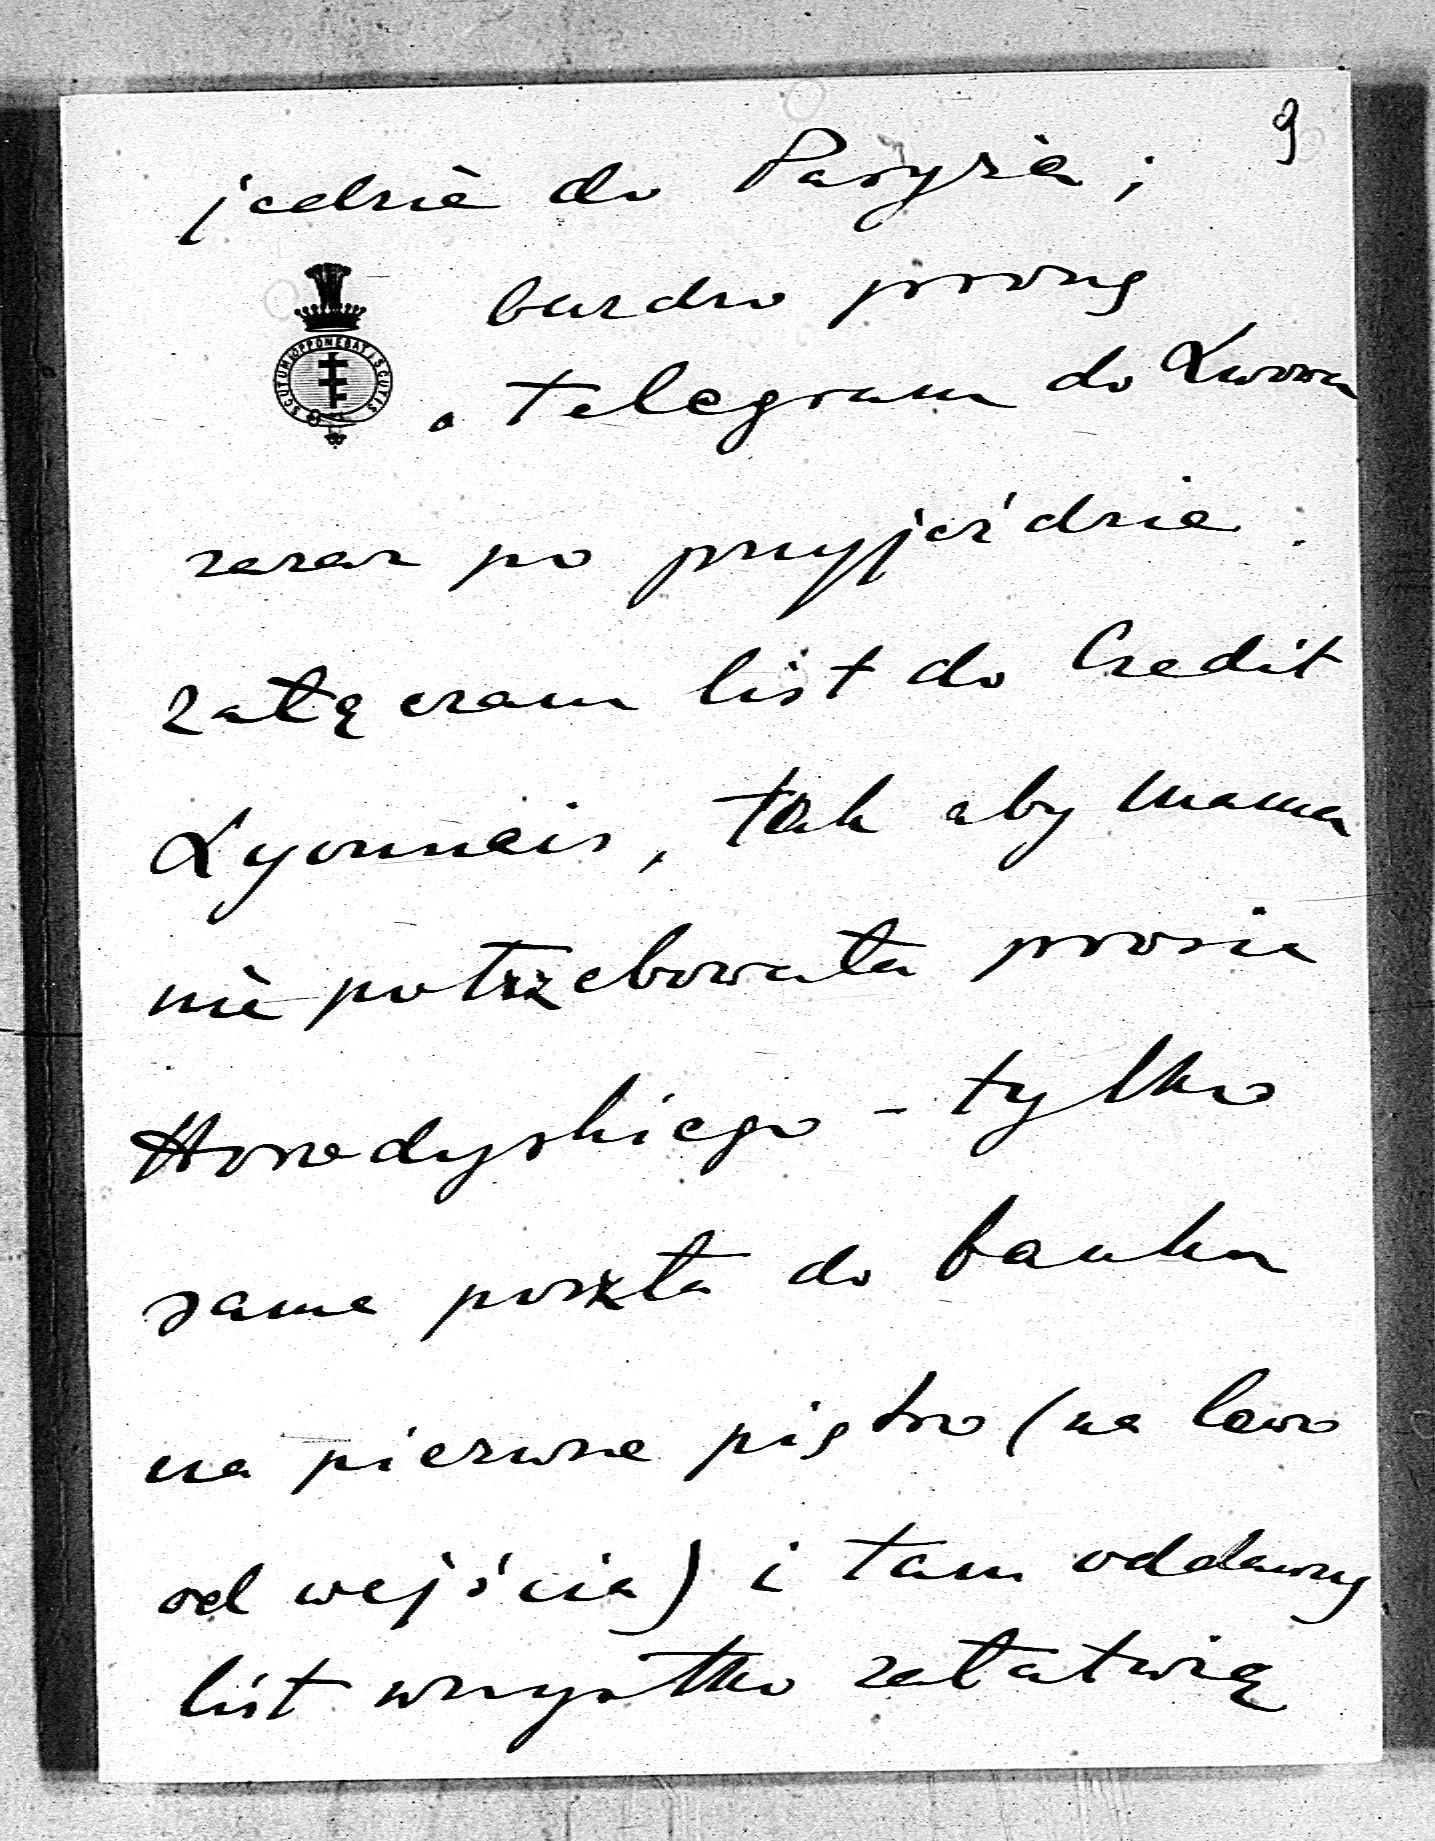 9
jedzie do Paryża;
bardzo proszę
o telegram do Lwowa
zaraz po przyjeździe.
SCUTUM OPPONEBAT SCUTIS
załączam list do Credit
Lyonnais, tak aby Mama
nie potrzebowała prosić
Horodyskiego - tylko
sama poszła do banku
na pierwsze piętro (na lewo
od wejścia) i tam oddawszy
list wszystko załatwią